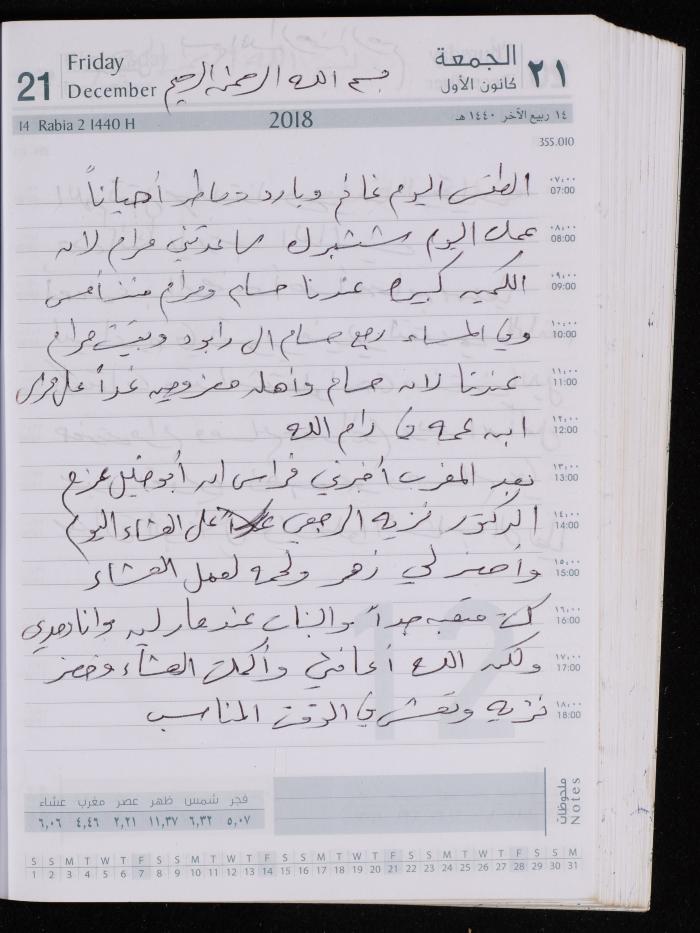 21
Friday
December
بسم الله الرحمن الرحيم
الجمعة
كانون الأول
٢١
14 Rabia 2 1440 H
2018
١٤ ربيع الآخر ١٤٤٠ هـ
355.010
٠٧،٠٠
07:00
الطقس اليوم غائم وبارد وماطر أحياناً
٠٨،٠٠
08:00
عملت اليوم ششبرك ساعدتني مرام لانه
٠٩،٠٠
09:00
الكميه كبيره عندنا حسام ومرام منذ أمس
١٠،٠٠
10:00
وفي المساء رجع حسام ال رابود وبقيت مرام
١١،٠٠
11:00
عندنا لانه حسام وأهله معزومين غداً على فراس
١٢،٠٠
12:00
ابن عمه في رام الله
١٣،٠٠
13:00
بعد المغرب أخبرني فراس انه أبو خليل عزم
١٤،٠٠
14:00
الدكتور نزيه الرجعي على العشاء اليوم
١٥،٠٠
15:00
وأحضر لي زهر ولحمه لعمل العشاء
١٦،٠٠
16:00
كنت متعبه جداً والبنات عند مارلين وانا وحدي
١٧،٠٠
17:00
ولكن الله أعانني وأكملت العشاء وحضر
١٨،٠٠
18:00
نزيه وتعشى في الوقت المناسب
12
فجر شمس ظهر عصر مغرب عشاء
٥,٠٧ ٦,٣٢ ١١,٣٧ ٢,٢١ ٤,٤٦ ٦,٠٦
ملحوظات
Notes
S S M T W T F S S M T W T F S S M T W T F S S M T W T F S S M
1 2 3 4 5 6 7 8 9 10 11 12 13 14 15 16 17 18 19 20 21 22 23 24 25 26 27 28 29 30 31